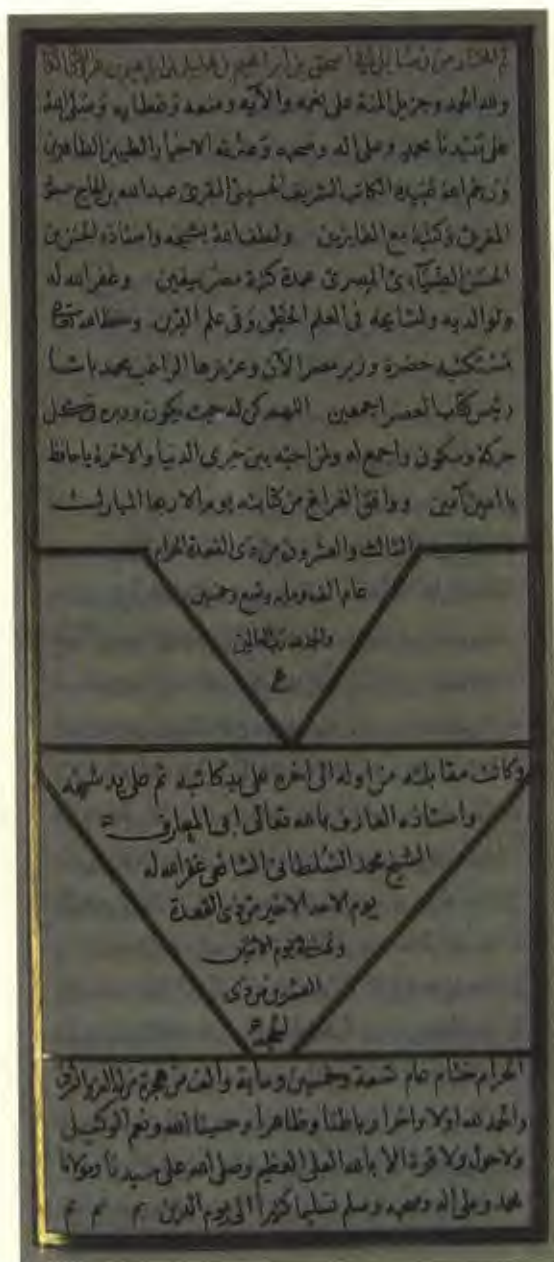 تم المختار من رسايل ابي اسحق بن ابراهيم بن هليل بن ابراهيم بن
ولله الحمد وجزيل المنة على نعمه والآيه ومنحه وعطايه وصلى الله
على سيدنا محمد وعلى اله وصحبه وعترته الاخيار الطيبين الطاهرين
ورحم الله عبيده الكاتب الشريف الحسيني المقرئ عبدالله بن الحاج
المقرئ وكتبه مع الفايزين ولطف الله بشيخه واستاذه الحسن بن
الحسن الضيآئي المصري عمدة كتبة مصر بيقين وغفر الله له
ولوالديه ولمشايخه في العلم الخطى وفي علم الدين وحفظ الله
مستكتبه حضرة وزير مصر الآن وعزيزها الراغب محمد باشا
رئيس كتاب العصر اجمعين اللهم كن له حيث يكون ودبره في كل
حركة وسكون واجمع له ولمن احبه بين خيرى الدنيا والاخرة يا حافظ
يا امين آمين ووافق الفراغ من كتابته يوم الاربعا المبارك
الثالث والعشرون من ذى القعدة الحرام
عام الف ومايه وتسع وخمسين
والحمد لله رب العالمين
وكانت مقابلته من اوله الى اخره على يد كاتبه ثم على يد شيخه
واستاذه العارف بالله تعالى ابى المعارف
الشيخ محمد السلطانى الشافعى غفر الله له
يوم الاحد الاخير من ذى القعدة
يوم الاثنين
العشرون من ذى
الحجة
الحرام ختام عام تسعة وخمسين وماية والف من هجرة من له
والحمد لله اولا واخرا وباطنا وظاهرا وحسبنا الله ونعم الوكيل
ولاحول ولا قوة الا بالله العلى العظيم وصلى الله على سيدنا ومولانا
محمد وعلى اله وصحبه وسلم تسليما كثيرا الى يوم الدين تم تم تم